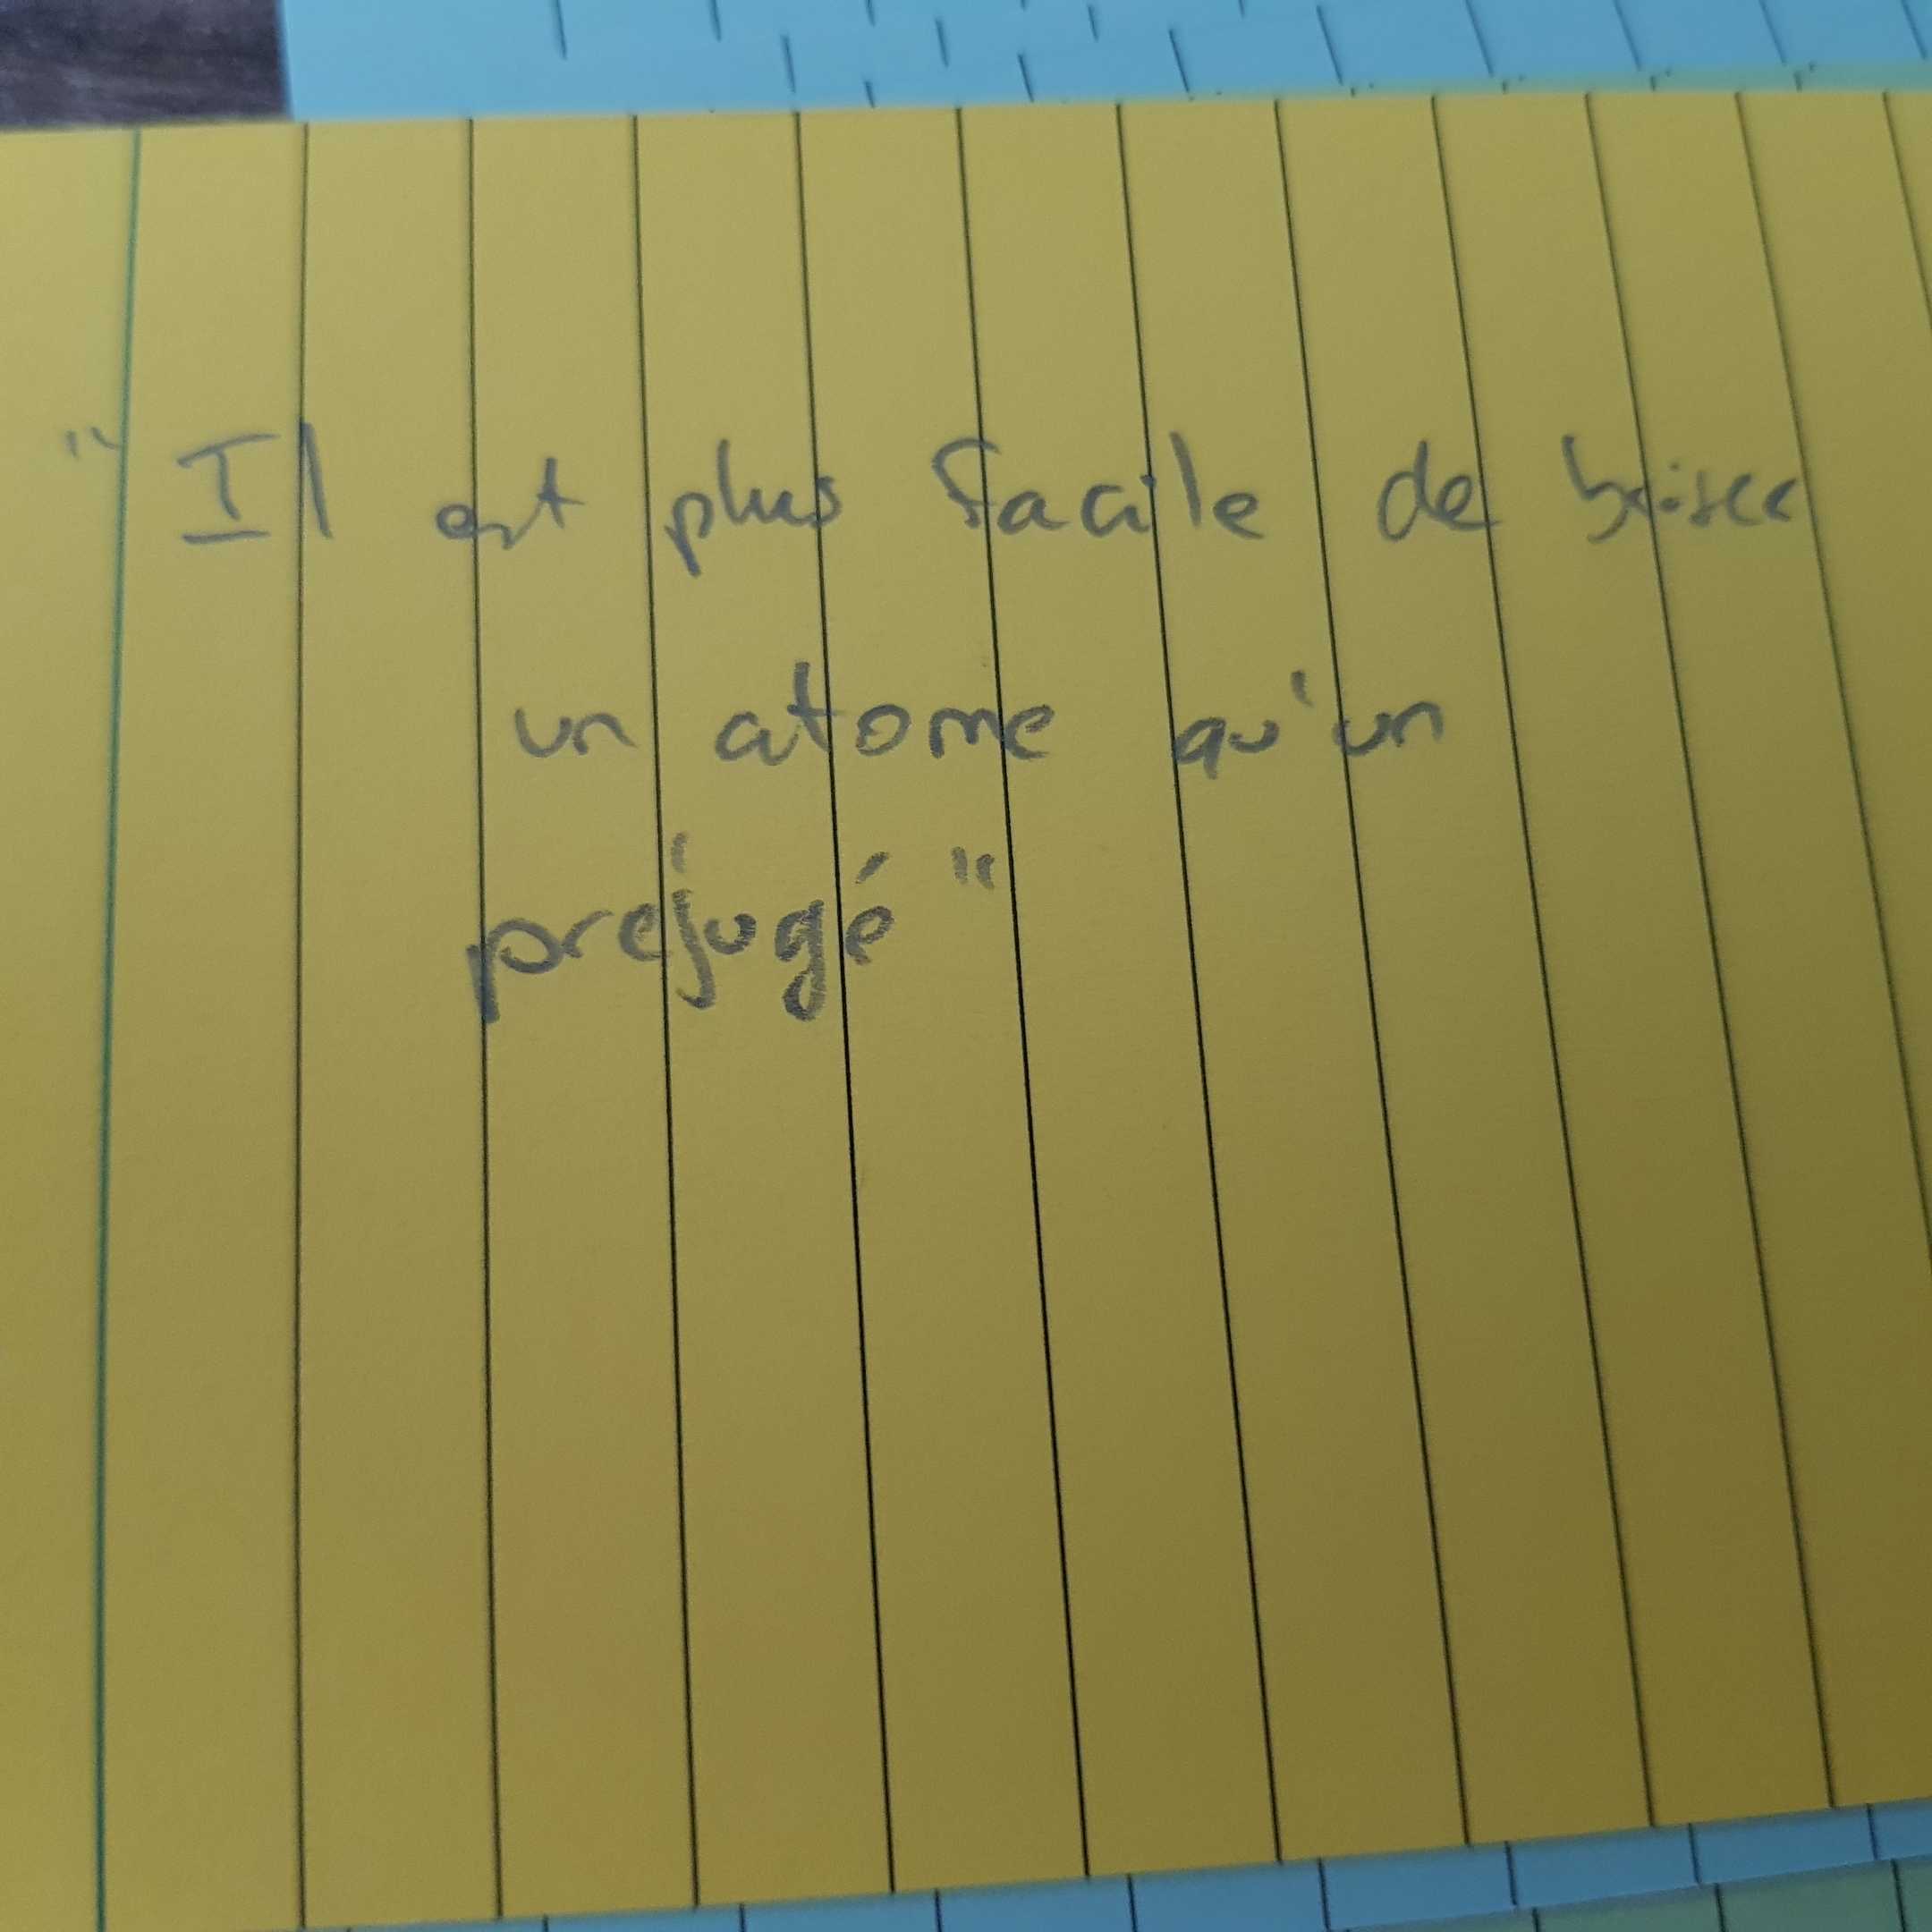 "Il est plus facile de briser
un atome qu'un
prejugé"